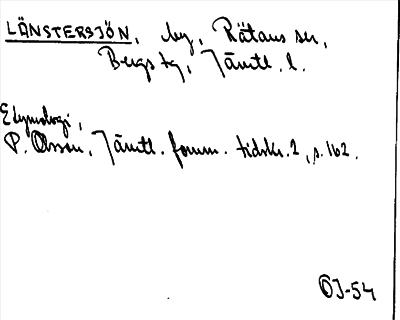 LÄNSTERSJÖN, by, Rätans sn,
Bergs tg, Jämtl. l.
Etymologi,
P. Olsson, Jämtl. fornm. tidskr. 2, s. 162.
OJ-54